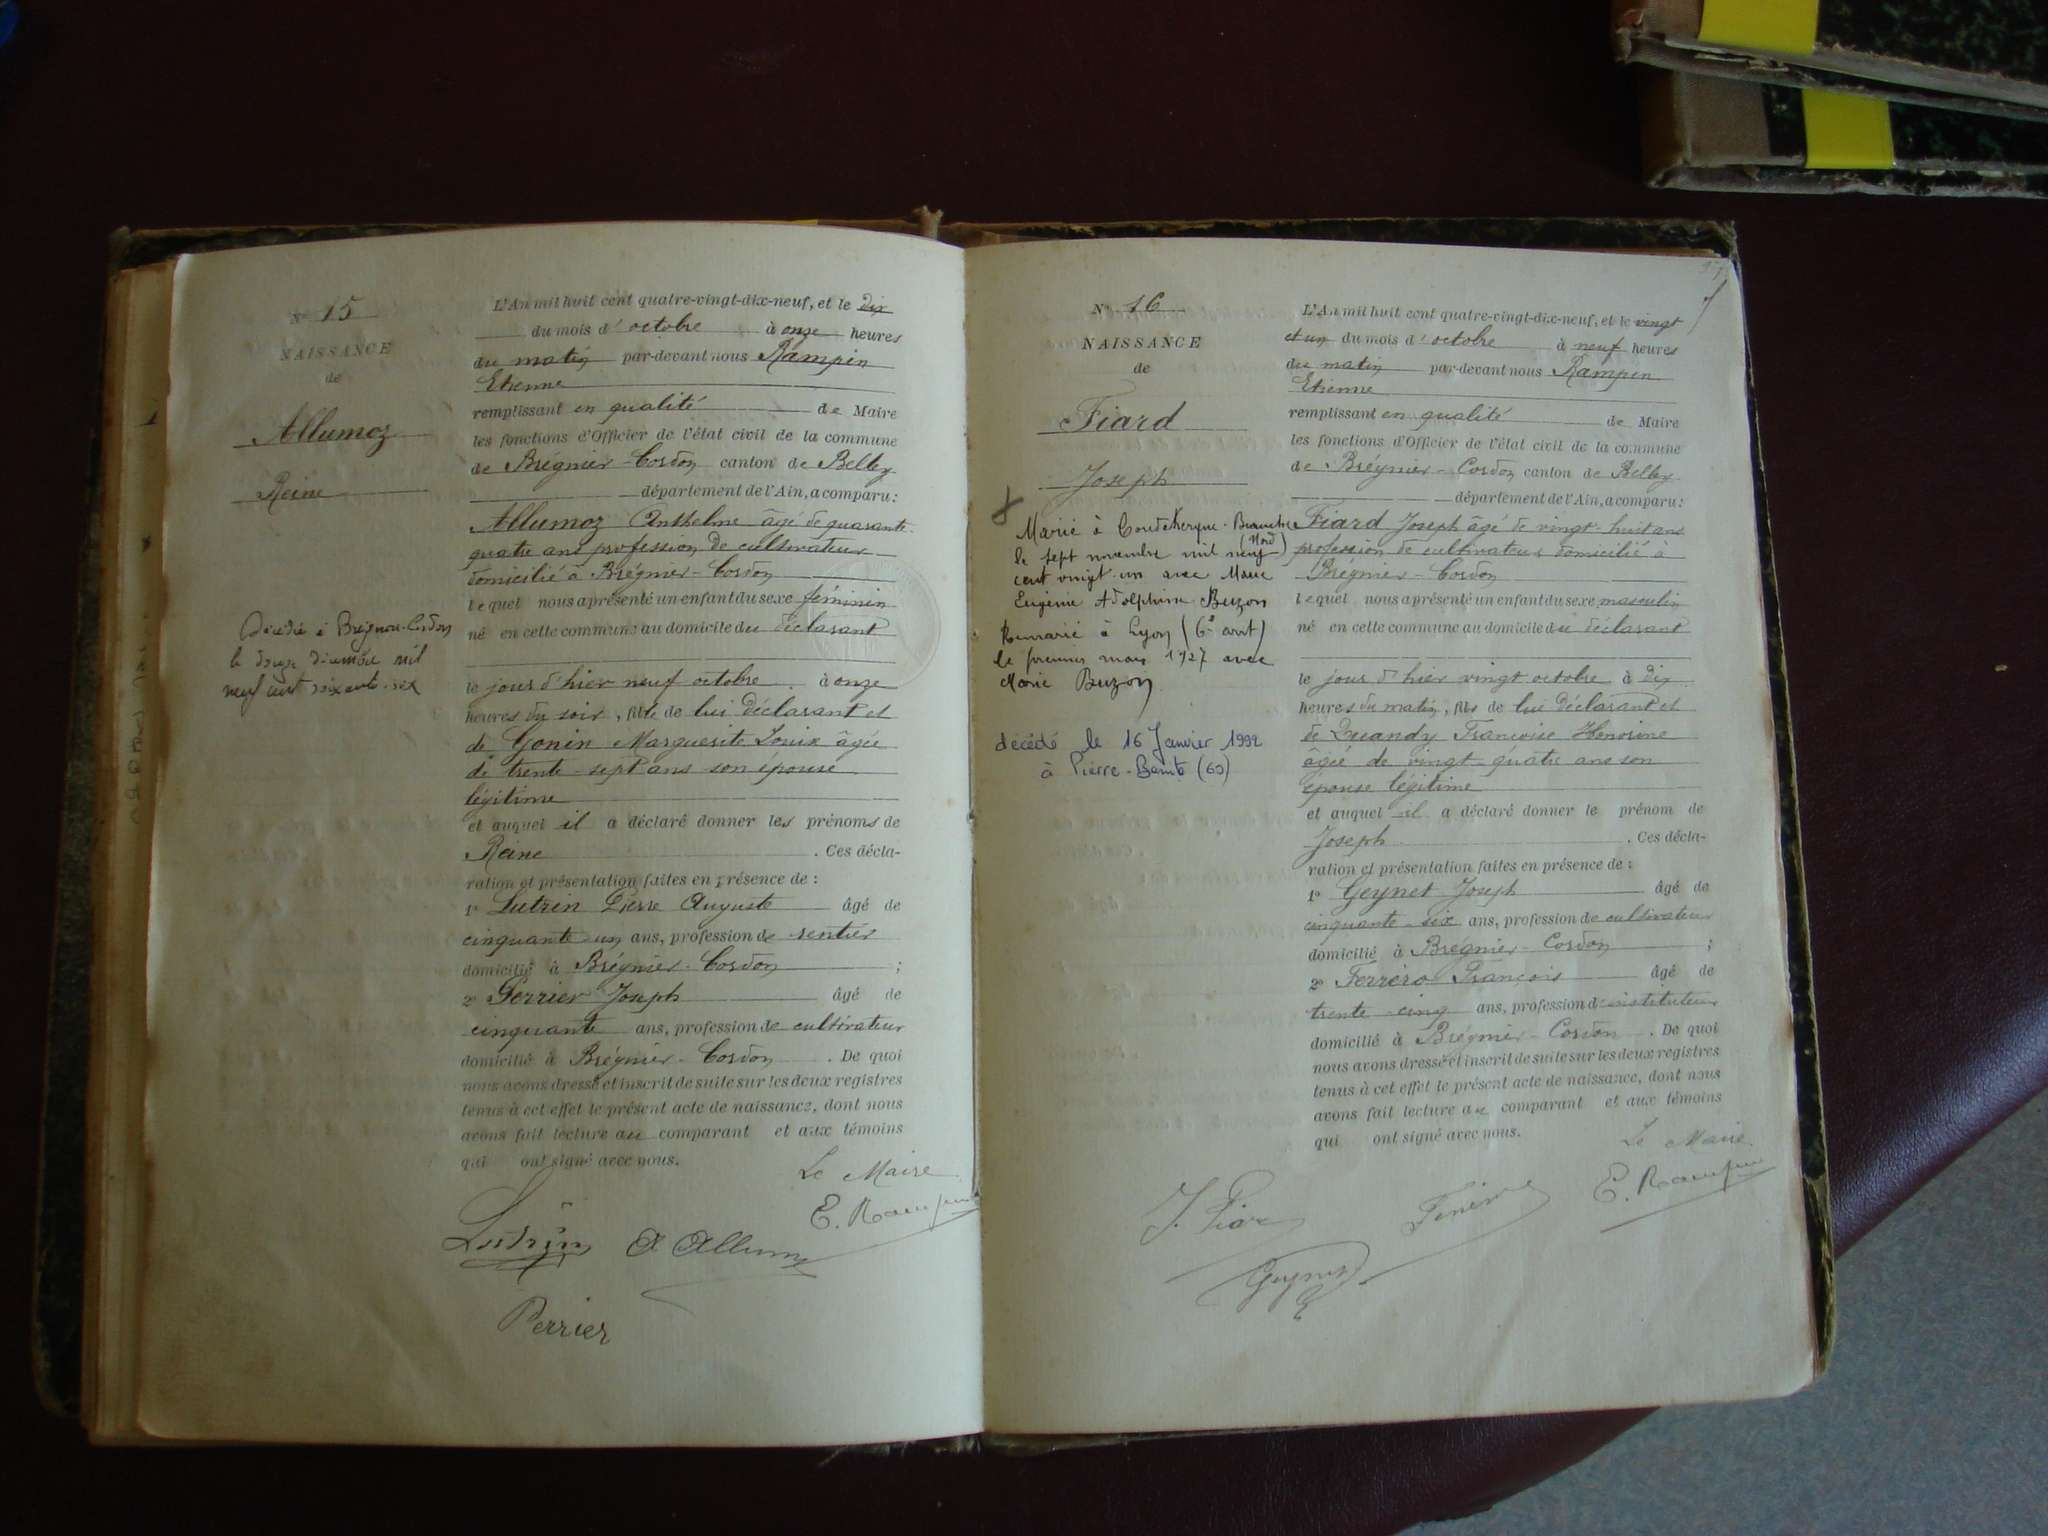 N° 15
NAISSANCE
de
Allumoz
Reine
Décédée à Brégnier-Cordon
le douze décembre mil
neuf cent soixante-six
L'An mil huit cent quatre-vingt-dix-neuf, et le dix
du mois d'octobre à onze heures
du matin par-devant nous Rampin
Etienne
remplissant en qualité de Maire
les fonctions d'Officier de l'état civil de la commune
de Brégnier-Cordon canton de Belley
département de l'Ain, a comparu :
Allumoz Anthelme âgé de quarante
quatre ans profession de cultivateur
domicilié à Brégnier-Cordon
lequel nous a présenté un enfant du sexe féminin
né en cette commune au domicile du déclarant
le jour d'hier neuf octobre à onze
heures du soir, fille de lui déclarant et
de Gonin Marguerite Louise âgée
de trente-sept ans son épouse
légitime
et auquel il a déclaré donner les prénoms de
Reine . Ces décla-
ration et présentation faites en présence de :
1° Lutrin Pierre Auguste âgé de
cinquante un ans, profession de rentier
domicilié à Brégnier-Cordon ;
2° Perrier Joseph âgé de
cinquante ans, profession de cultivateur
domicilié à Brégnier-Cordon . De quoi
nous avons dressé et inscrit de suite sur les deux registres
tenus à cet effet le présent acte de naissance, dont nous
avons fait lecture au comparant et aux témoins
qui ont signé avec nous.
Le Maire
E. Rampin
Lutrin A Allumoz
Perrier
N° 16
NAISSANCE
de
Fiard
Joseph
Marié à Coudekerque-Branche
(Nord)
le sept novembre mil neuf
cent vingt-un avec Marie
Eugénie Adolphine Buzon
Remarié à Lyon (6e arrt)
le premier mars 1927 avec
Marie Buzon
décédé le 16 Janvier 1992
à Pierre-Bénite (69)
L'An mil huit cent quatre-vingt-dix-neuf, et le vingt
et un du mois d'octobre à neuf heures
du matin par-devant nous Rampin
Etienne
remplissant en qualité de Maire
les fonctions d'Officier de l'état civil de la commune
de Brégnier-Cordon canton de Belley
département de l'Ain, a comparu :
Fiard Joseph âgé de vingt-huit ans
profession de cultivateur domicilié à
Brégnier-Cordon
lequel nous a présenté un enfant du sexe masculin
né en cette commune au domicile du déclarant
le jour d'hier vingt octobre à dix
heures du matin, fils de lui déclarant et
de Quandy Françoise Honorine
âgée de vingt-quatre ans son
épouse légitime
et auquel il a déclaré donner le prénom de
Joseph . Ces décla-
ration et présentation faites en présence de :
1° Geynet Joseph âgé de
cinquante-six ans, profession de cultivateur
domicilié à Brégnier-Cordon ;
2° Ferréro François âgé de
trente-cinq ans, profession d'instituteur
domicilié à Brégnier-Cordon . De quoi
nous avons dressé et inscrit de suite sur les deux registres
tenus à cet effet le présent acte de naissance, dont nous
avons fait lecture au comparant et aux témoins
qui ont signé avec nous.
Le Maire
E. Rampin
J. Fiard
Geynet